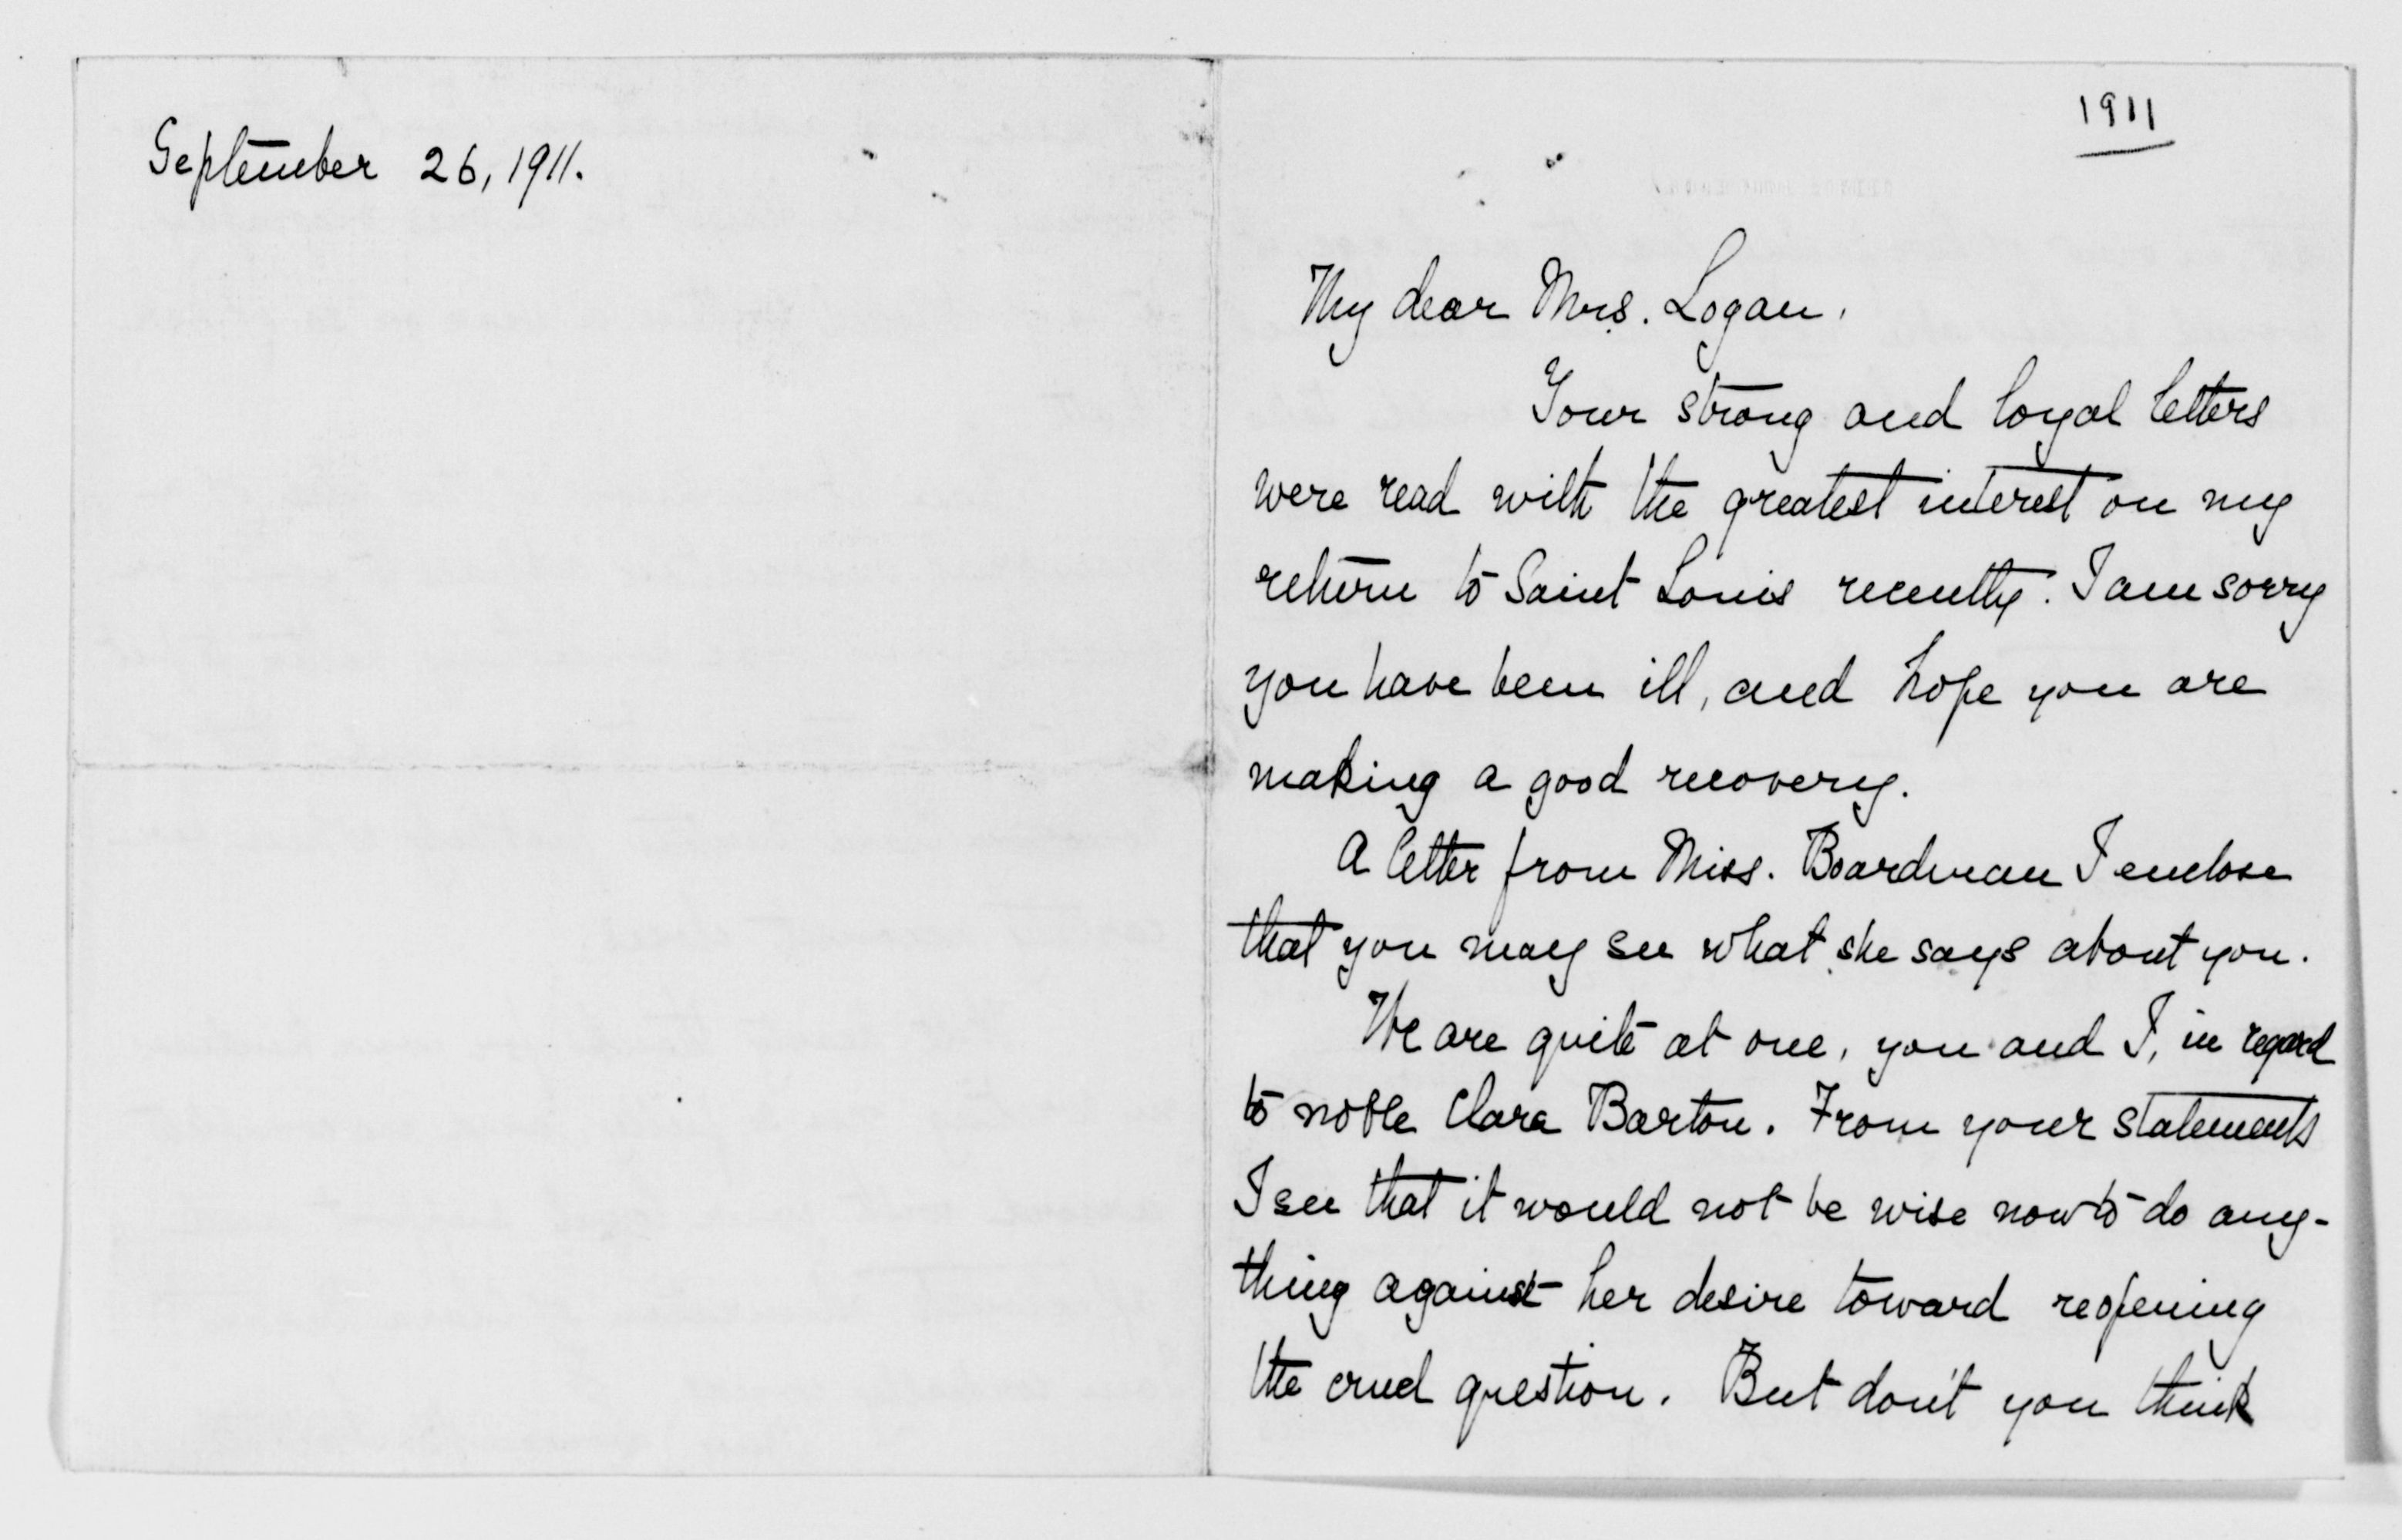 September 26, 1911.
1911
My dear Mrs. Logan,
Your strong and loyal letters
were read with the greatest interest on my
return to Saint Louis recently. I am sorry
you have been ill, and hope you are
making a good recovery.
A letter from Miss. Boardman I enclose
that you may see what she says about you.
We are quite at one, you and I, in regard
to noble Clara Barton. From your statements
I see that it would not be wise now to do any-
thing against her desire toward reopening
the cruel question. But don't you think